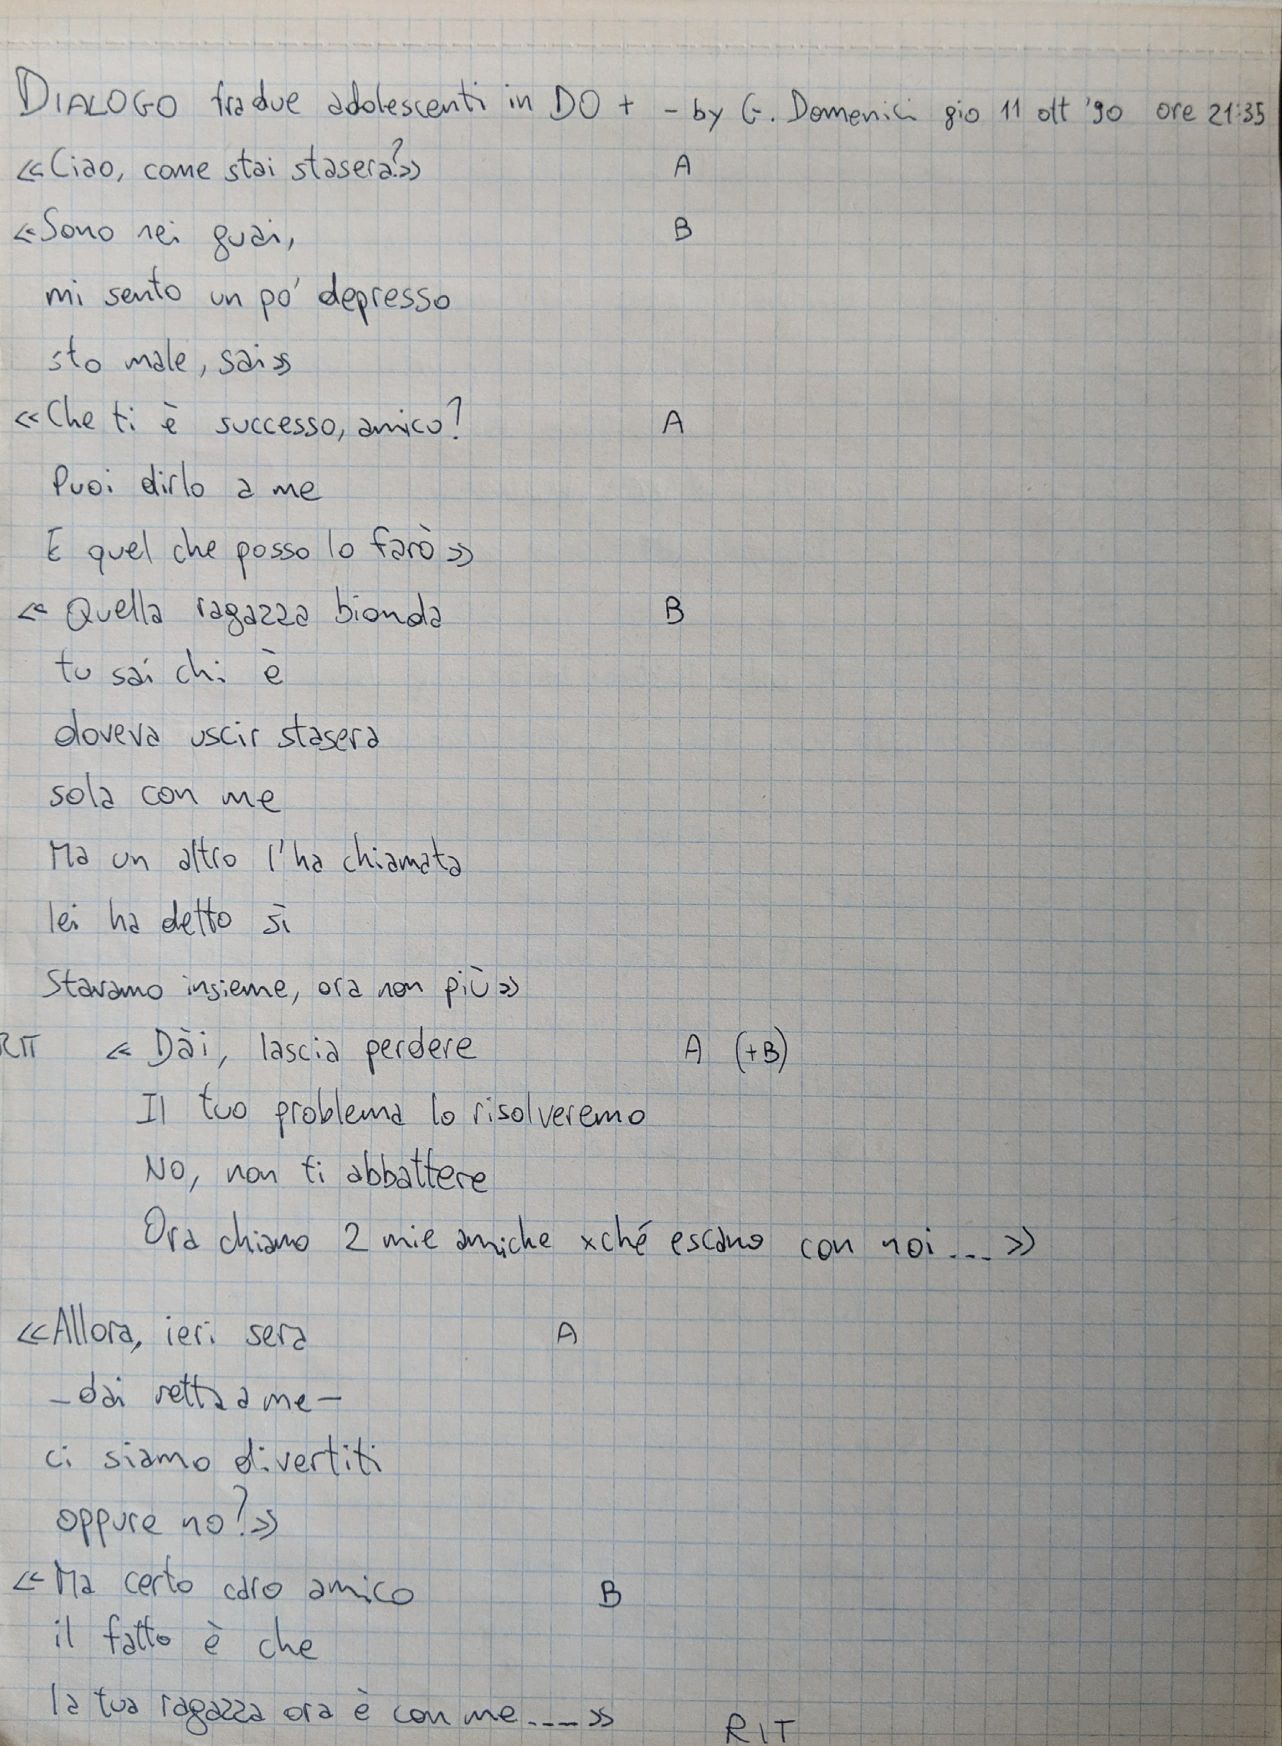 DIALOGO fra due adolescenti in DO + - by G. Domenici gio 11 ott '90 ore 21:35
«Ciao, come stai stasera?» A
«Sono nei guai, B
mi sento un po' depresso
sto male, sai»
«Che ti è successo, amico? A
Puoi dirlo a me
E quel che posso lo farò»
« Quella ragazza bionda B
tu sai chi è
doveva uscir stasera
sola con me
Ma un altro l'ha chiamata
lei ha detto sì
Stavamo insieme, ora non più»
RIT « Dài, lascia perdere A (+B)
Il tuo problema lo risolveremo
No, non ti abbattere
Ora chiamo 2 mie amiche xché escano con noi... »
«Allora, ieri sera A
- dai retta a me -
ci siamo divertiti
oppure no?»
«Ma certo caro amico B
il fatto è che
la tua ragazza ora è con me....»
RIT